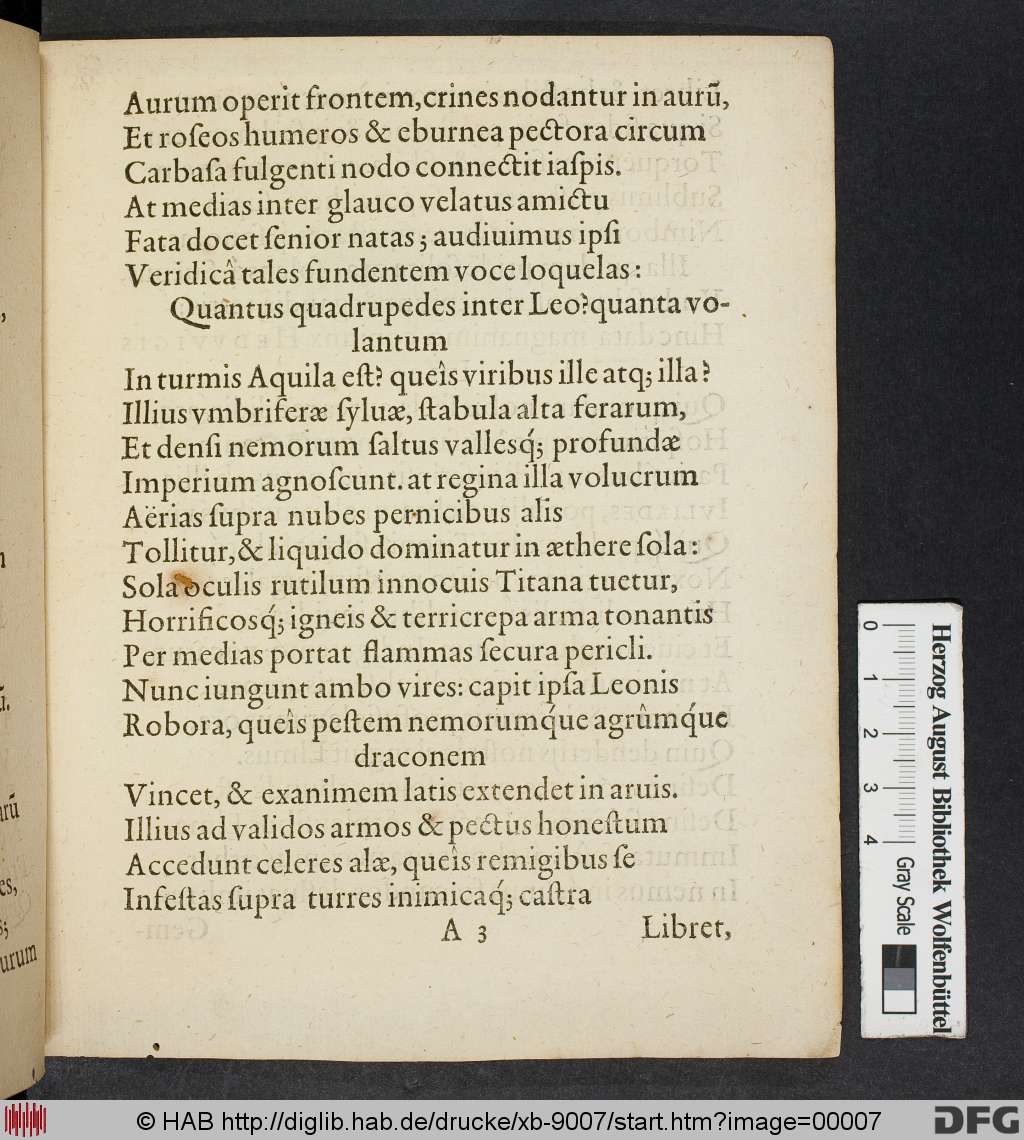 Aurum operit frontem, crines nodantur in aurū,
Et roſeos humeros & eburnea pectora circum
Carbaſa fulgenti nodo connectit iaſpis.
At medias inter glauco velatus amictu
Fata docet ſenior natas; audiuimus ipſi
Veridicâ tales fundentem voce loquelas:
Quantus quadrupedes inter Leo? quanta vo-
lantum
In turmis Aquila eſt? queîs viribus ille atq; illa?
Illius vmbriferæ ſyluæ, ſtabula alta ferarum,
Et denſi nemorum ſaltus vallesq́; profundæ
Imperium agnoſcunt. at regina illa volucrum
Aërias ſupra nubes pernicibus alis
Tollitur, & liquido dominatur in æthere ſola:
Sola oculis rutilum innocuis Titana tuetur,
Horrificosq́; igneis & terricrepa arma tonantis
Per medias portat flammas ſecura pericli.
Nunc iungunt ambo vires: capit ipſa Leonis
Robora, queîs peſtem nemorumq́ue agrûmq́ue
draconem
Vincet, & exanimem latis extendet in aruis.
Illius ad validos armos & pectus honeſtum
Accedunt celeres alæ, queîs remigibus ſe
Infeſtas ſupra turres inimicaq́; caſtra
A 3 Libret,
0 1 2 3 4
Gray Scale
Herzog August Bibliothek Wolfenbüttel
© HAB http://diglib.hab.de/drucke/xb-9007/start.htm?image=00007
DFG